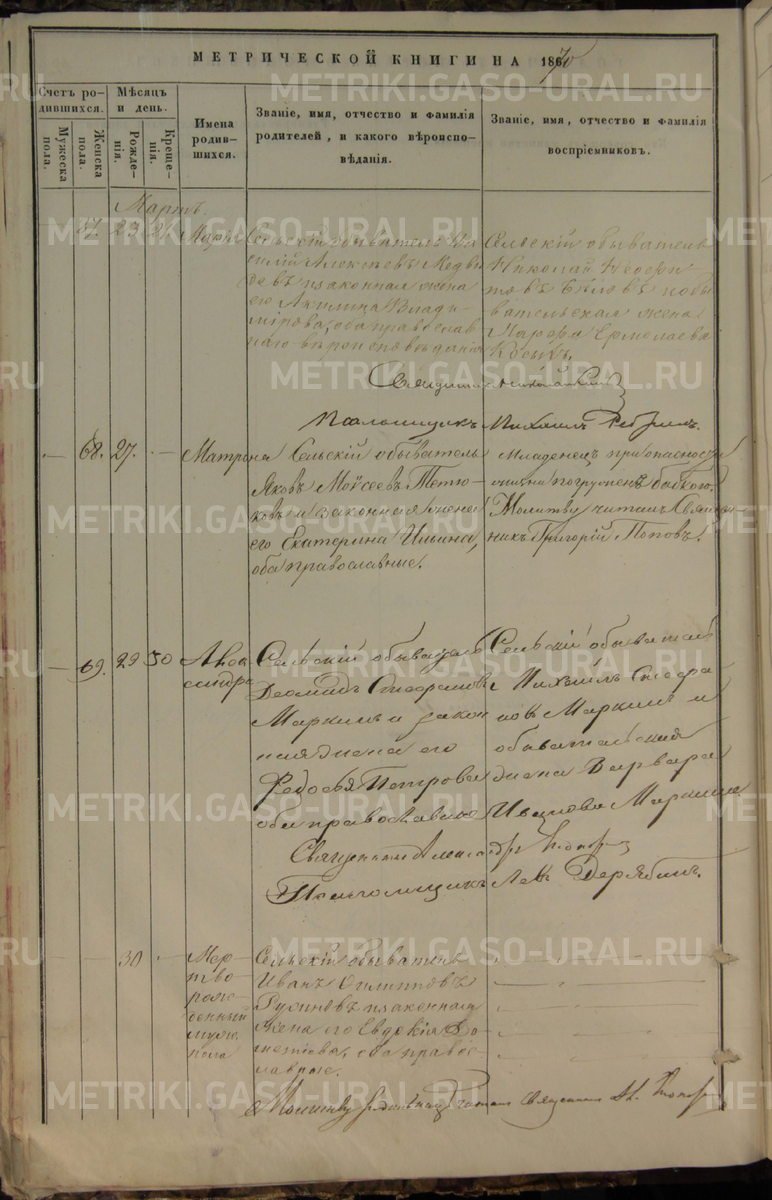 МЕТРИЧЕСКОЙ КНИГИ НА 1870
Счетъ родившихся.
Мужеска пола.
Женска пола.
Мѣсяцъ и день.
Рожденія.
Крещенія.
Имена родившихся.
Званіе, имя, отчество и фамилія родителей, и какого вѣроисповѣданія.
Званіе, имя, отчество и фамилія воспріемниковъ.
Мартъ.
67. 23 24 Марія
Сельскій обыватель Ва
силій Алексѣевъ Медвѣ
девъ и законная жена
его Акилина Влади
мірова, оба православ
наго вѣроисповѣданія
Сельскій обыватель
Николай
обы
вательская жена
Марѳа Ермолаева
Священникъ Николай
Псаломщикъ Михаилъ
68. 27. Матрона
Сельскій обыватель
Яковъ Моѵсеевъ Тетю
ковъ и законная жена
его Екатерина Ильина,
оба православные.
Младенец при опасности
жизни погруженъ бабкою.
Молитву читалъ Священ
никъ Григорій Поповъ.
69. 29 30 Алек
сандра
Сельскій обыватель
Діомидъ Стефановъ
Маркинъ и закон
ная жена его
Ѳедосья Петрова
оба православные
Сельскій обыватель
Михаилъ Стефа
новъ Маркинъ и
обывательская
жена Варвара
Иванова Маркина.
Священникъ Александръ
Псаломщикъ Левъ Дерябинъ.
30 Мер
тво
рож
денный
муж.
пола
Сельскій обыватель
Иванъ Филипповъ
и законная
жена его Евдокія
оба право
славные.
Молитву родильницѣ читалъ Священникъ Ал.
METRIKI.GASO-URAL.RU